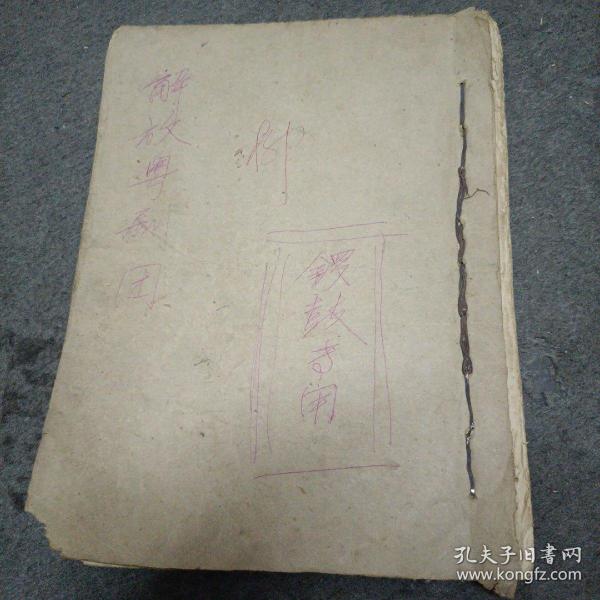 解放粤剧团
锣鼓专用
孔夫子旧书网
www.kongfz.com